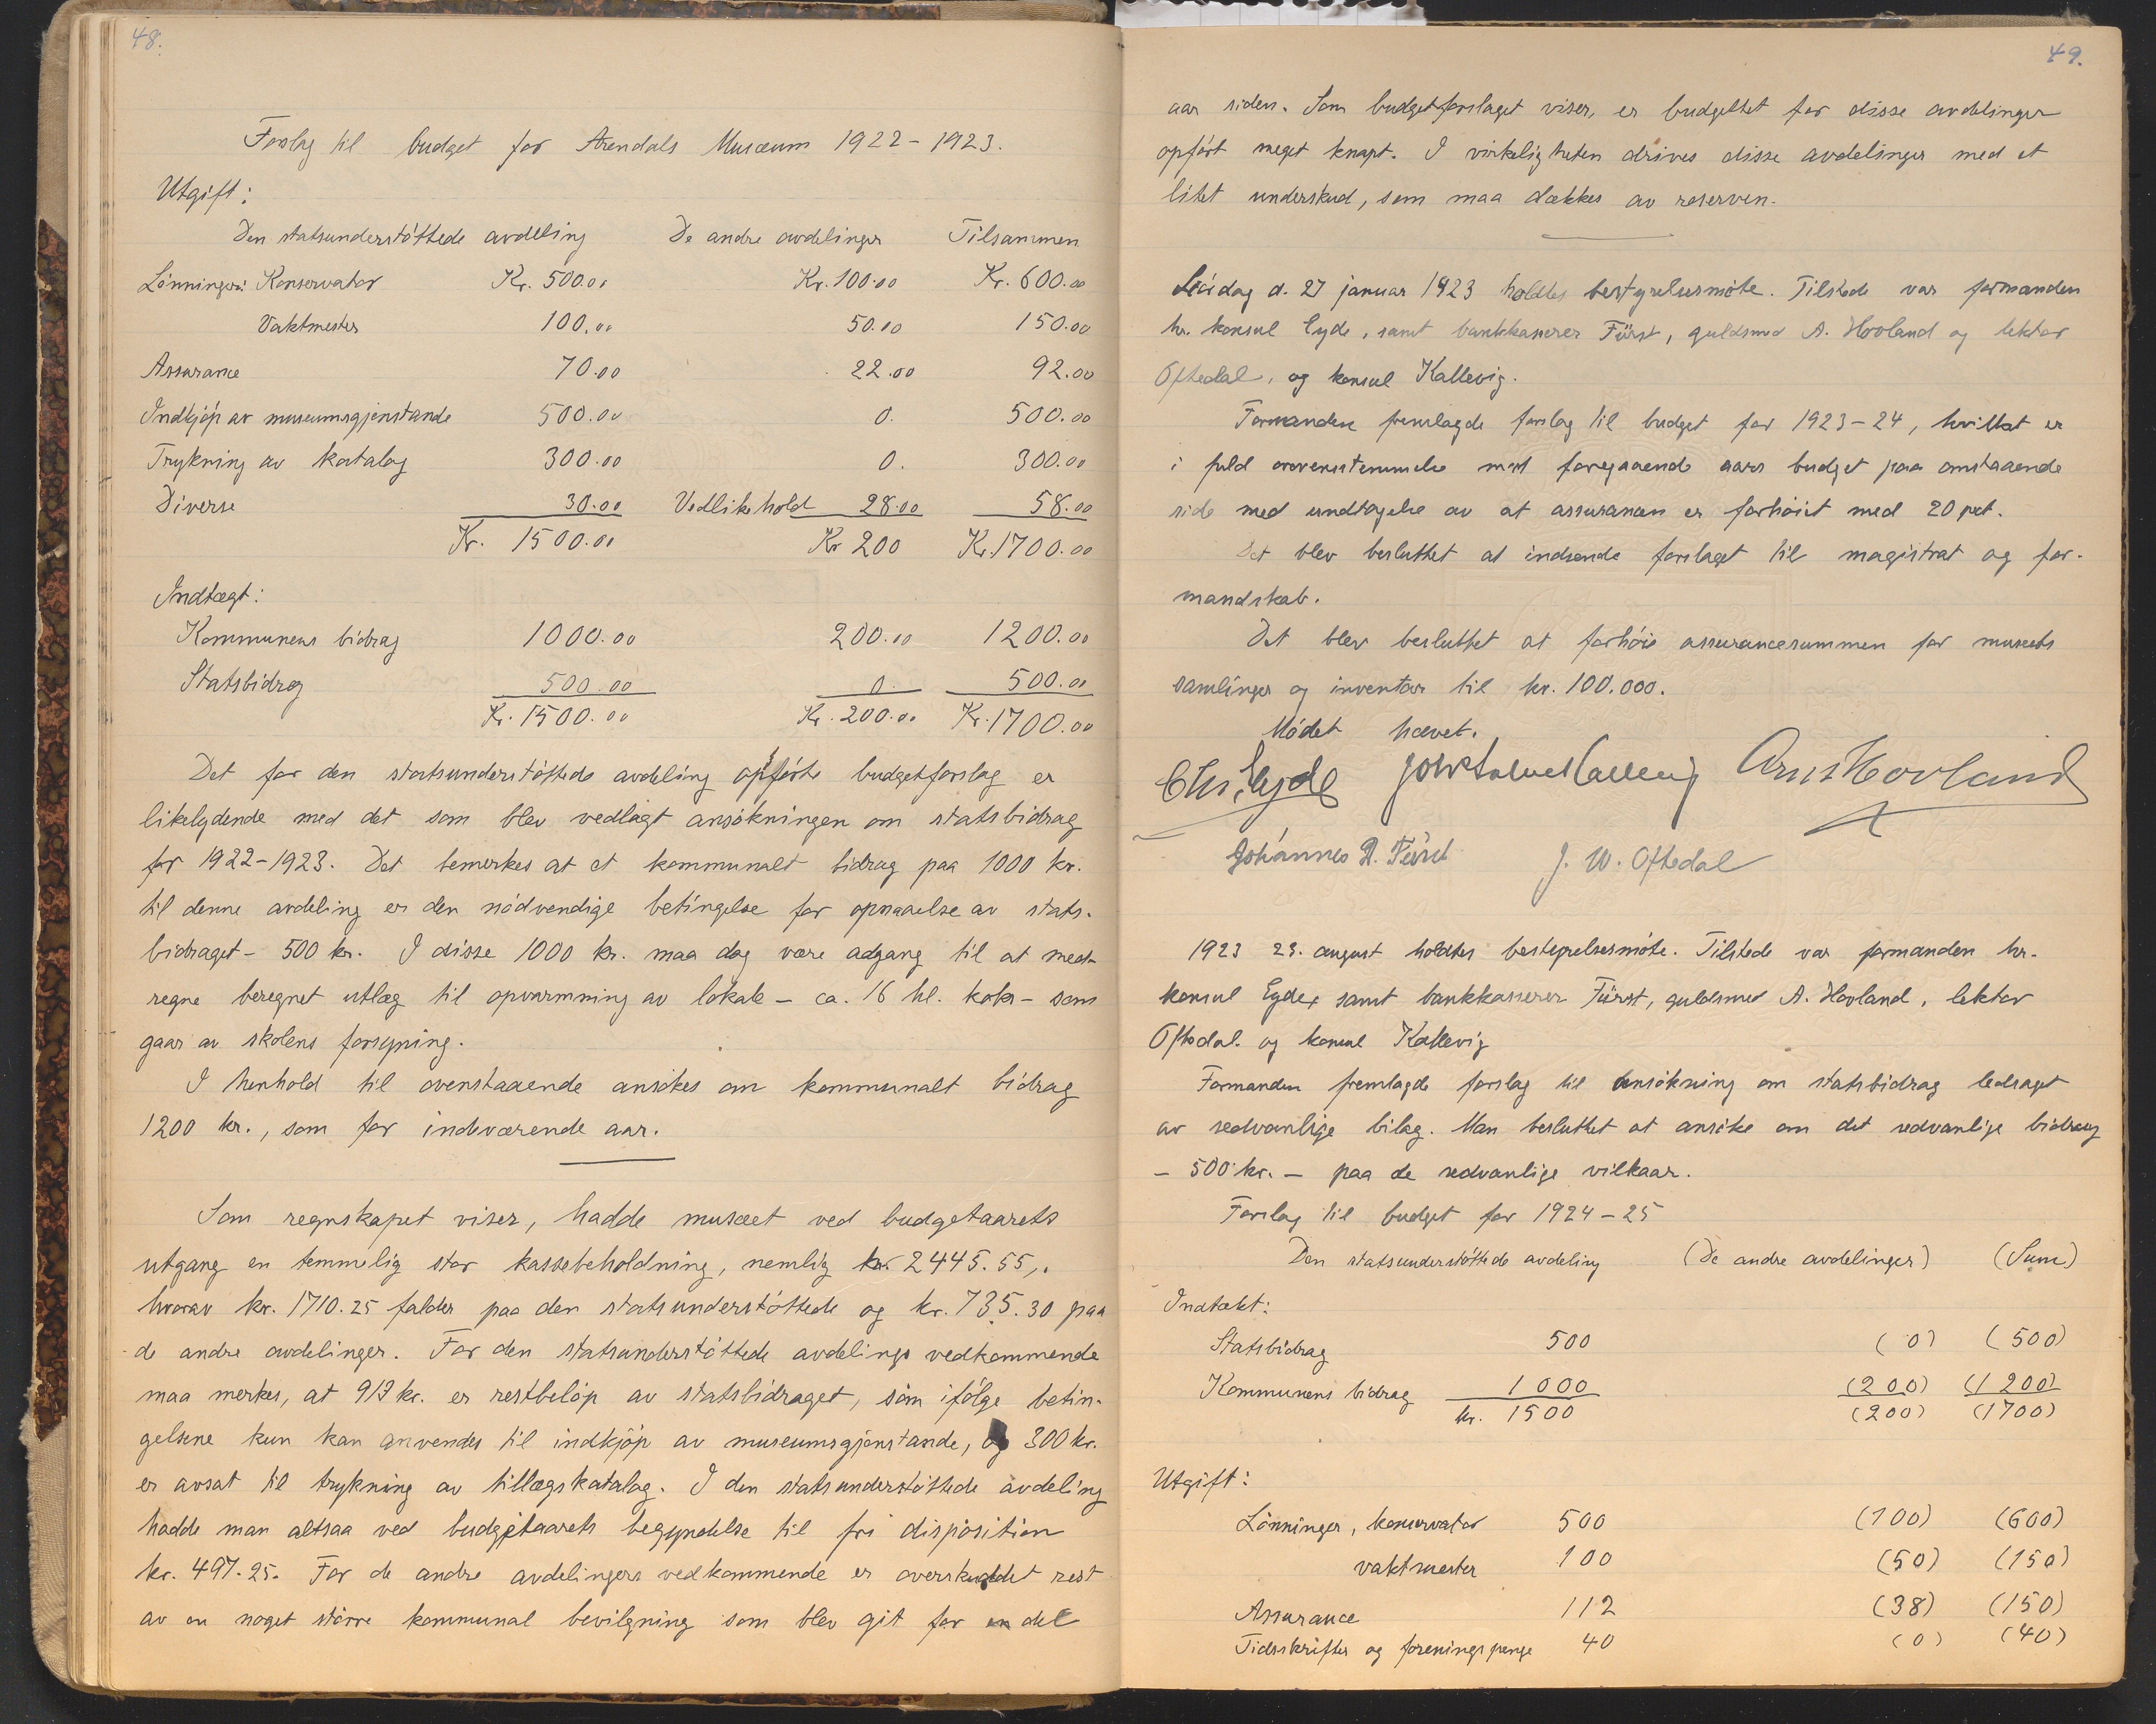 48.
Forslag til budget for Arendals Musæum 1922-1923.
Utgift:
Den statsunderstøttede avdeling De andre avdelinger Tilsammen
Lønninger: Konservator Kr. 500.00 Kr. 100.00 Kr. 600.00
Vaktmester 100.00 50.00 150.00
Assurance 70.00 22.00 92.00
Indkjøp av museumsgjenstande 500.00 0. 500.00
Trykning av katalog 300.00 0. 300.00
Diverse 30.00 Vedlikehold 28.00 58.00
Kr. 1500.00 Kr 200 Kr. 1700.00
Indtægt:
Kommunens bidrag 1000.00 200.00 1200.00
Statsbidrag 500.00 0. 500.00
Kr. 1500.00 Kr. 200.00 Kr. 1700.00
Det for den statsunderstøttede avdeling opførte budgetforslag er
likelydende med det som blev vedlagt ansøkningen om statsbidrag
for 1922-1923. Det bemerkes at et kommunalt bidrag paa 1000 kr.
til denne avdeling er den nødvendige betingelse for opnaaelse av stats-
bidraget - 500 kr. I disse 1000 kr. maa dog være adgang til at med-
regne beregnet utlæg til opvarmning av lokale - ca. 16 hl. koks - som
gaar av skolens forsyning.
I henhold til ovenstaaende ansøkes om kommunalt bidrag
1200 kr., som for indeværende aar.
Som regnskapet viser, hadde musæet ved budgetaarets
utgang en temmelig stor kassebeholdning, nemlig kr. 2445.55,
hvorav kr. 1710.25 falder paa den statsunderstøttede og kr. 735.30 paa
de andre avdelinger. For den statsunderstøttede avdelings vedkommende
maa merkes, at 913 kr. er restbeløp av statsbidraget, som ifølge betin-
gelsene kun kan anvendes til indkjøp av museumsgjenstande, og 300 kr.
er avsat til trykning av tillægskatalog. I den statsunderstøttede avdeling
hadde man altsaa ved budgetaarets begyndelse til fri disposition
kr. 497.25. For de andre avdelingers vedkommende er overskuddet rest
av en noget større kommunal bevilgning som blev git for en del
49.
aar siden. Som budgetforslaget viser, er budgettet for disse avdelinger
opført meget knapt. I virkeligheten drives disse avdelinger med et
litet underskud, som maa dækkes av reserven.
Lørdag d. 27 januar 1923 holdtes bestyrelsesmøte. Tilstede var formanden
hr. konsul Eyde, samt bankkasserer Fürst, guldsmed A. Hovland og lektor
Oftedal, og konsul Kallevig.
Formanden fremlagde forslag til budget for 1923-24, hvilket er
i fuld overensstemmelse med foregaaende aars budget paa omstaaende
side med undtagelse av at assurancen er forhøiet med 20 pct.
Det blev besluttet at indsende forslaget til magistrat og for-
mandskab.
Det blev besluttet at forhøie assurancesummen for museets
samlinger og inventar til kr. 100.000.
Mødet hævet.
Chr. Eyde Kallevig Arns Hovland
Johannes R. Fürst J. W. Oftedal
1923 23. august holdtes bestyrelsesmøte. Tilstede var formanden hr.
konsul Eyde, samt bankkasserer Fürst, guldsmed A. Hovland, lektor
Oftedal. og konsul Kallevig
Formanden fremlagde forslag til ansøkning om statsbidrag ledsaget
av sedvanlige bilag. Man besluttet at ansøke om det sedvanlige bidrag
- 500 kr. - paa de sedvanlige vilkaar.
Forslag til budget for 1924-25
Den statsunderstøttede avdeling (De andre avdelinger) (Sum)
Indtækt:
Statsbidrag 500 (0) (500)
Kommunens bidrag 1000 (200) (1200)
kr. 1500 (200) (1700)
Utgift:
Lønninger, konservator 500 (100) (600)
vaktmester 100 (50) (150)
Assurance 112 (38) (150)
Tidsskrifter og foreningspenge 40 (0) (40)